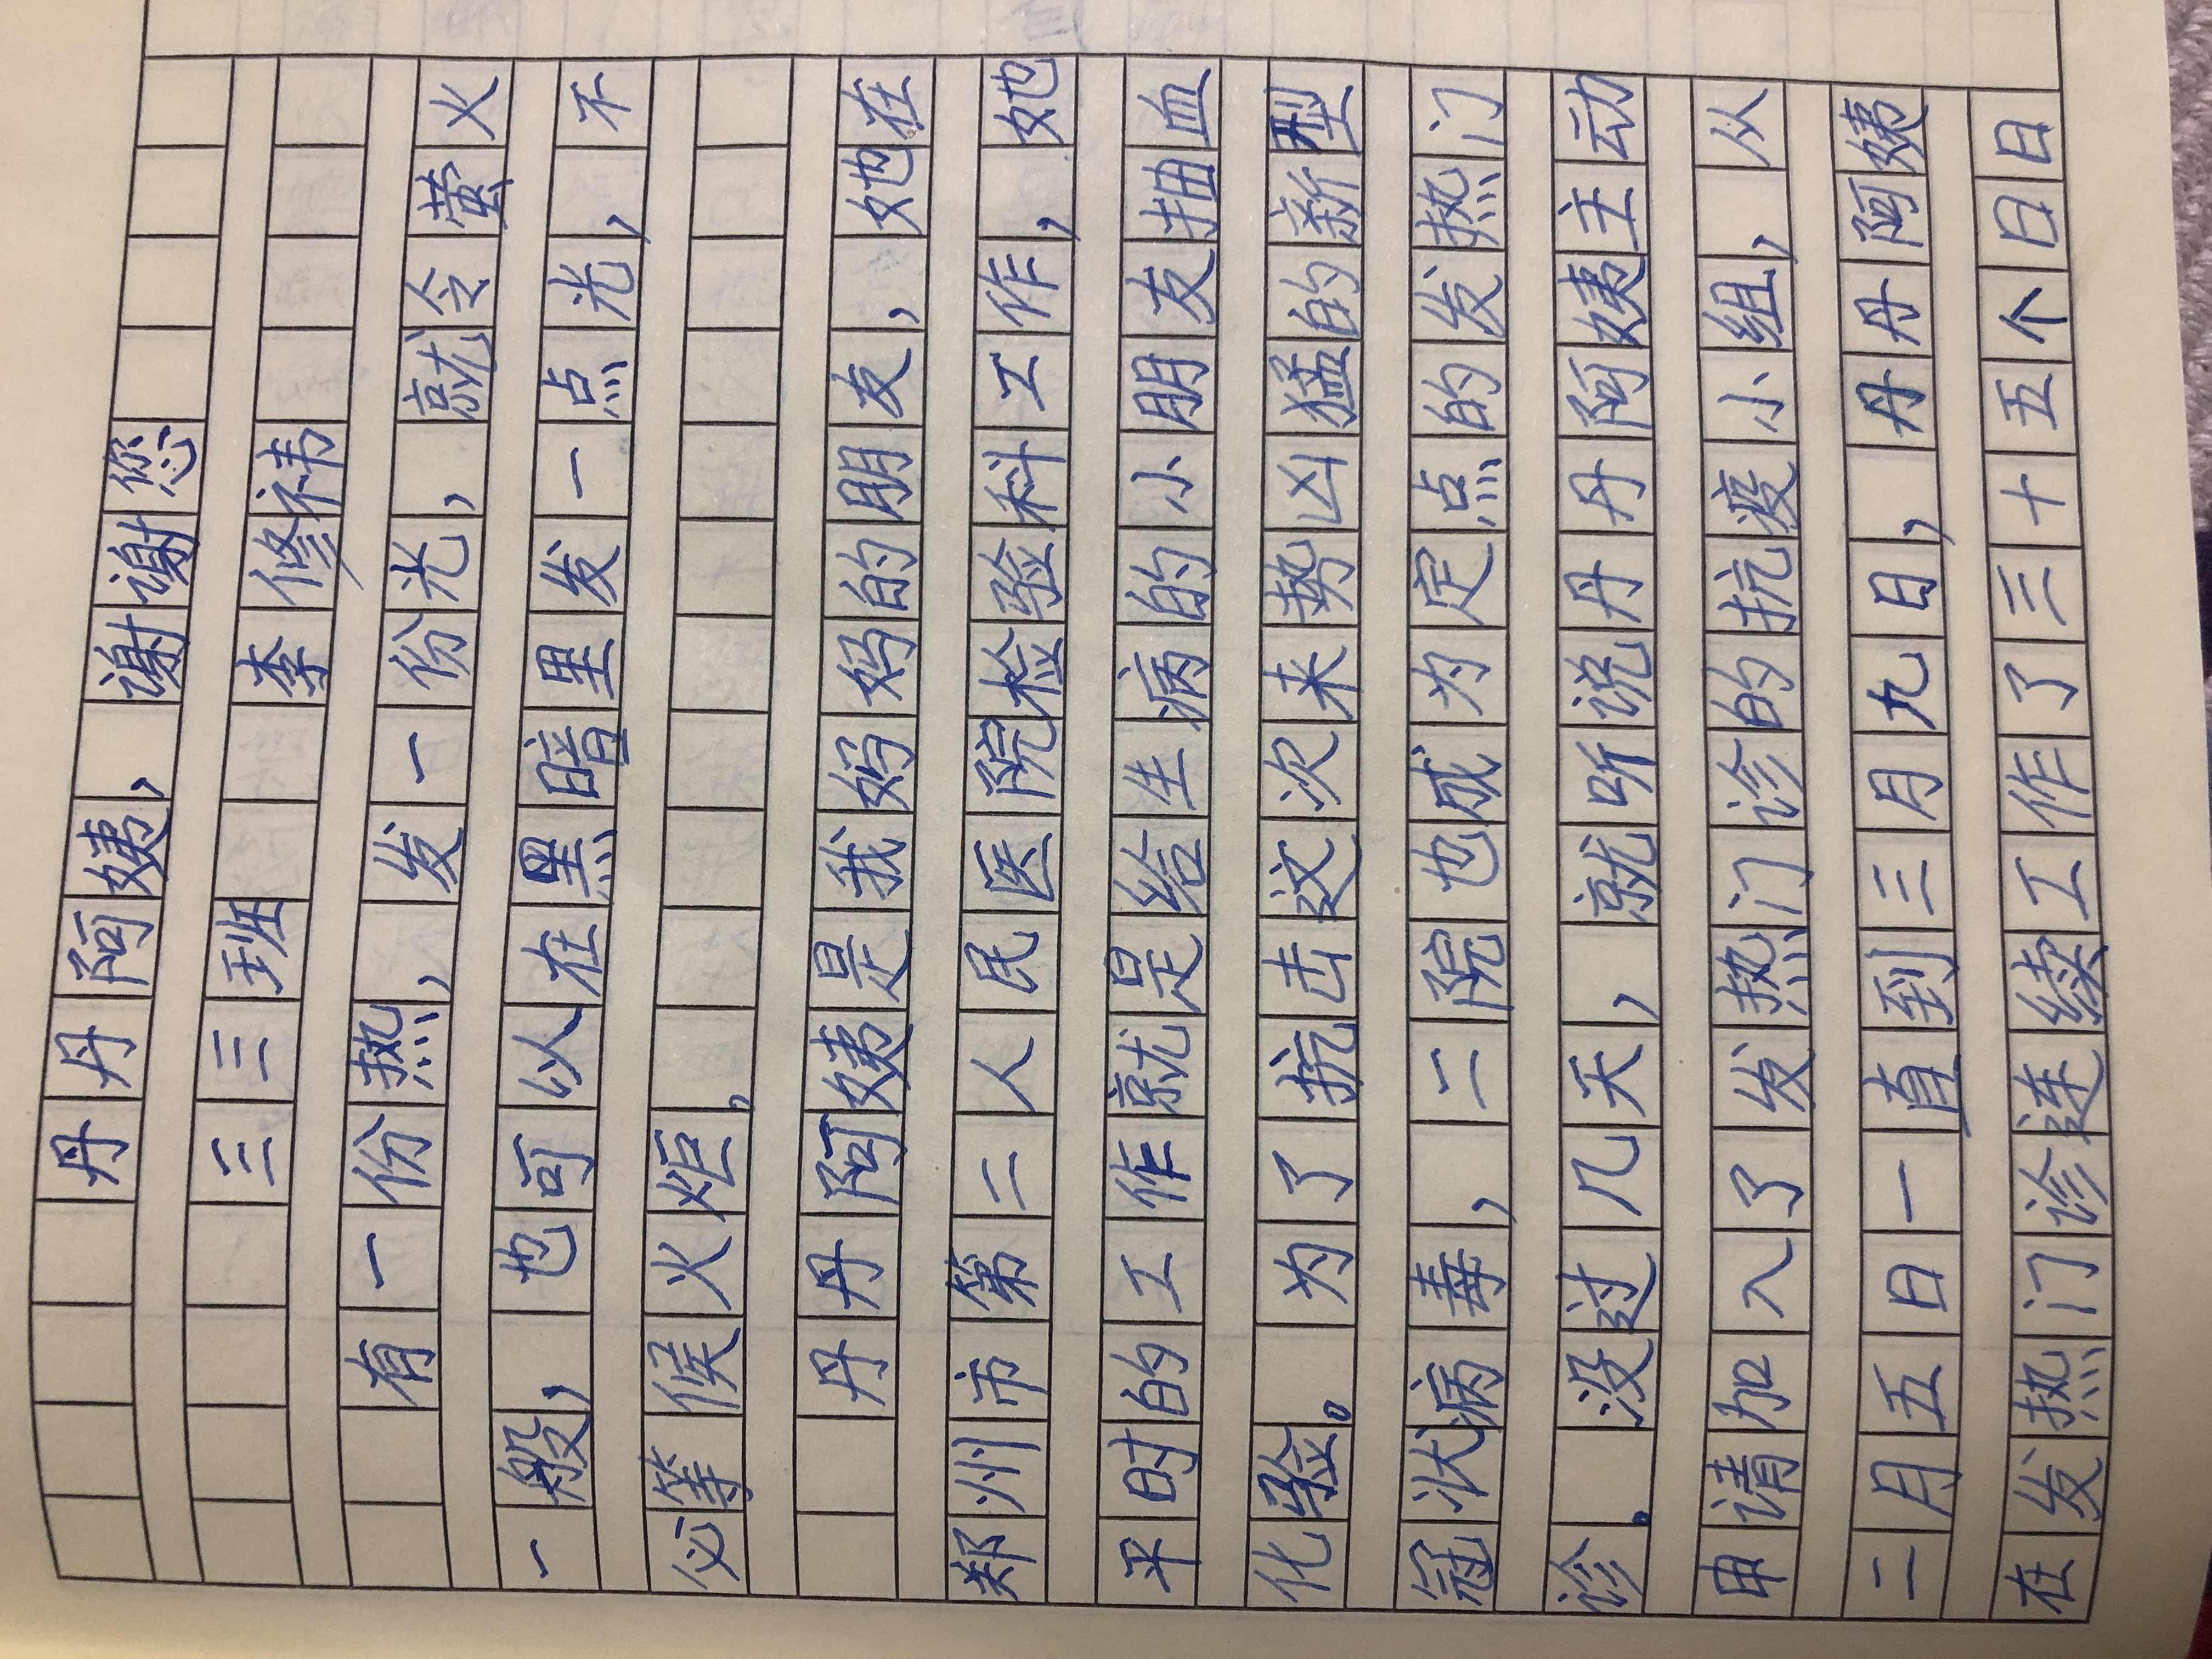 丹丹阿姨，谢谢您
三三班 李修祎
有一份热，发一份光，就令萤火
一般，也可以在黑暗里发一点光，不
必等候火炬。
丹丹阿姨是我妈妈的朋友，她在
郑州市第二人民医院检验科工作，她
平时的工作就是给生病的小朋友抽血
化验。为了抗击这次来势凶猛的新型
冠状病毒，二院也成为定点的发热门
诊。没过几天，就听说丹丹阿姨主动
申请加入了发热门诊的抗疫小组，从
二月五日一直到三月九日，丹丹阿姨
在发热门诊连续工作了三十五个日日